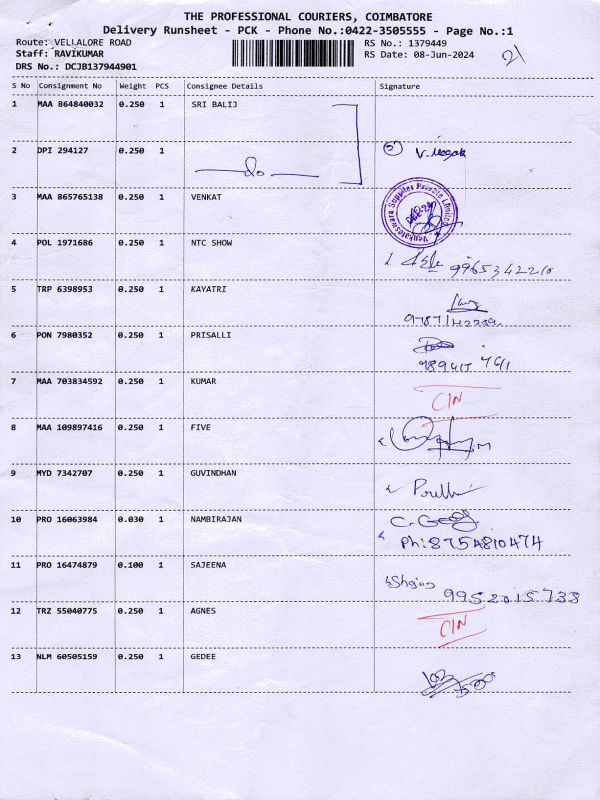 THE PROFESSIONAL COURIERS, COIMBATORE
Delivery Runsheet - PCK - Phone No.:0422-3505555 - Page No.:1
Route: VELLALORE ROAD RS No.: 1379449
Staff: RAVIKUMAR RS Date: 08-Jun-2024 21
DRS No.: DCJB137944901
S No Consignment No Weight PCS Consignee Details Signature
1 MAA 864840032 0.250 1 SRI BALIJ
2 DPI 294127 0.250 1
do
3 MAA 865765138 0.250 1 VENKAT
Venkateswara Supplier Private Limited
4 POL 1971686 0.250 1 NTC SHOW
9965342210
5 TRP 6398953 0.250 1 KAYATRI
6 PON 7980352 0.250 1 PRISALLI
7 MAA 703834592 0.250 1 KUMAR
CIN
8 MAA 109897416 0.250 1 FIVE
9 MYD 7342707 0.250 1 GUVINDHAN
10 PRO 16063984 0.030 1 NAMBIRAJAN
Ph:8754810474
11 PRO 16474879 0.100 1 SAJEENA
9952015733
12 TRZ 55040775 0.250 1 AGNES
CIN
13 NLM 60505159 0.250 1 GEDEE